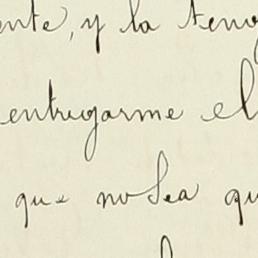 ente, y la teno
entregarme el
que no sea qu